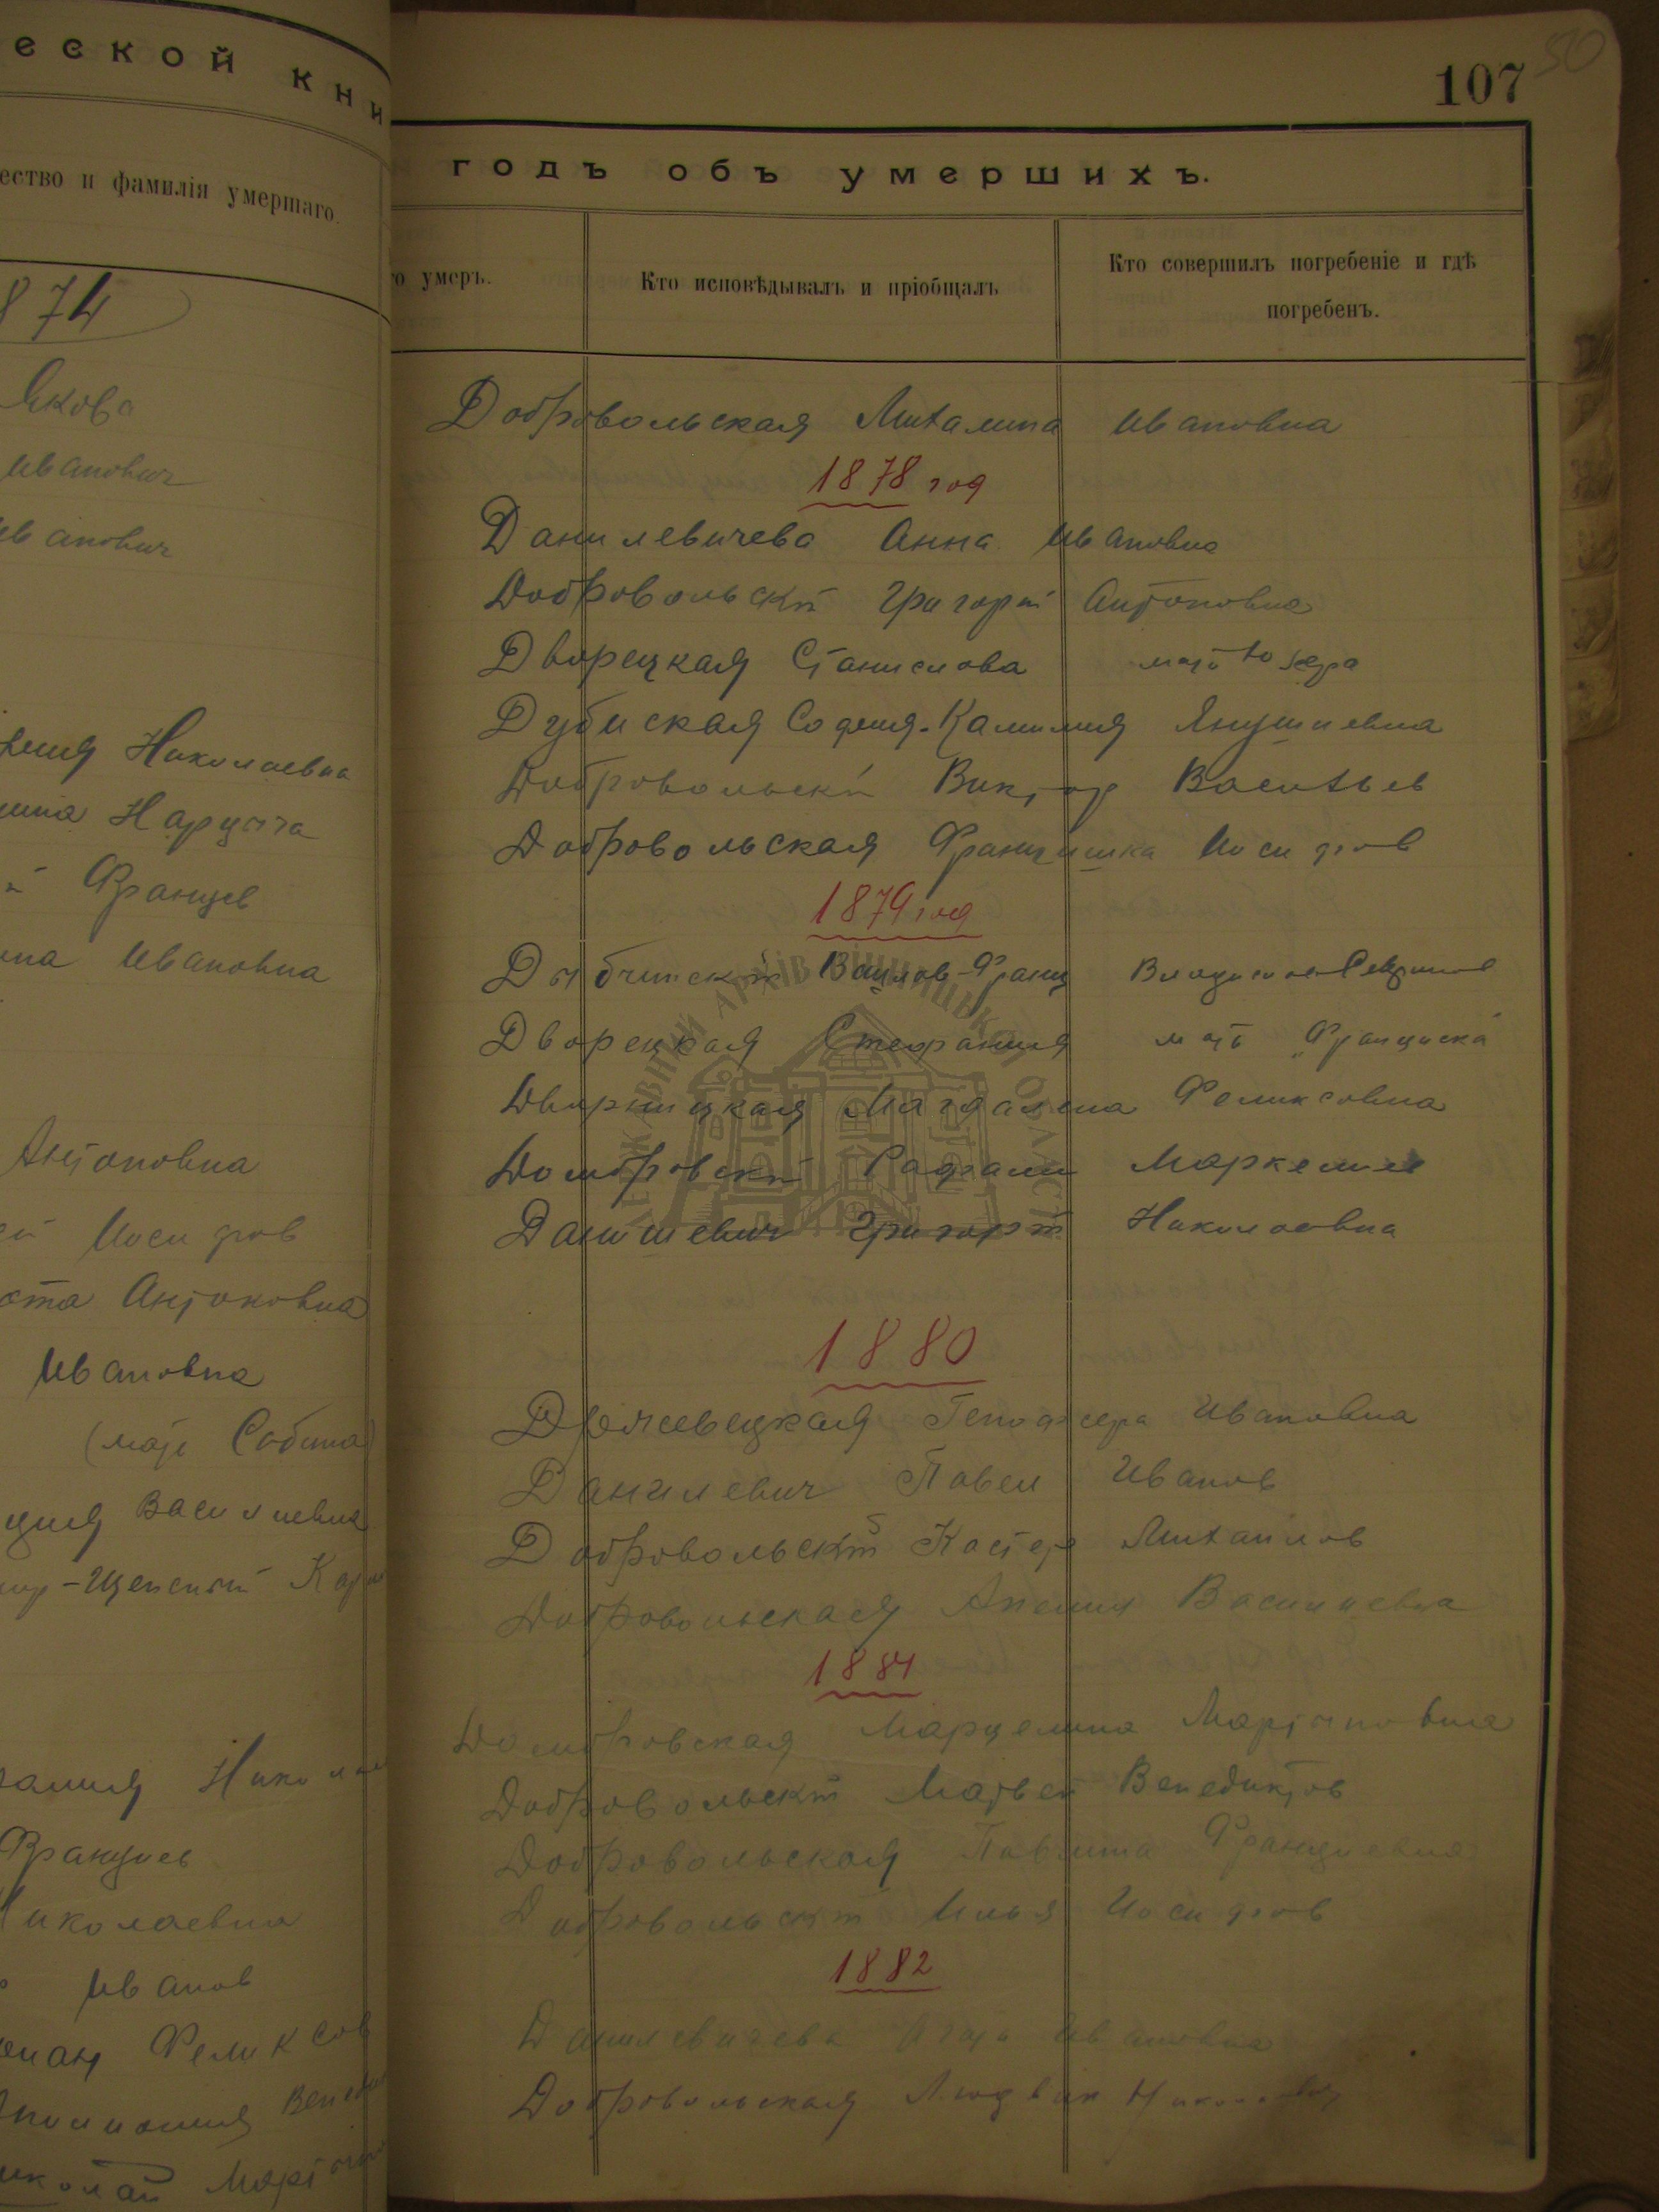 еской кни
ество и фамилія умершаго.
874
Якова
Иванович
Иванович
Николаевна
Наруста
Францев
Ивановна
Антоновна
Иосифов
Антоновна
Ивановна
(мать Сабина)
Василиевна
Никола
Францев
Николаевна
Иванов
Феликсов
107
50
годъ объ умершихъ.
го умеръ.
Кто исповѣдывалъ и пріобщалъ
Кто совершилъ погребеніе и гдѣ
погребенъ.
Добровольская Михалина Ивановна
1878 год
Данилевичева Анна Ивановна
Добровольскій Григорій Антоновна
Дворецкая Станислова мать
Дубиская София-Камилия Янушиевна
Добровольскій Виктор Васильев
Добровольская Францишка Иосифов
1879 год
Вацлов-Франц
Дворецкая Стефания мать "Франциска"
Дворницкая Магдалена Феликсовна
Домбровскій Маркелие
Данилевич Григорій Николаевна
1880
Геновефа Ивановна
Данилевич Павел Иванов
Добровольскій Михаилов
Добровольская Анелия Василиевна
1881
Домбровская Марцелина Мартиновна
Добровольскій Матвей Венедиктов
Добровольская Павлина Францишевна
Добровольскій Илья Иосифов
1882
Данилевичева Агата Ивановна
Добровольская Людвик
ДЕРЖАВНИЙ АРХІВ ВІННИЦЬКОЇ ОБЛАСТІ